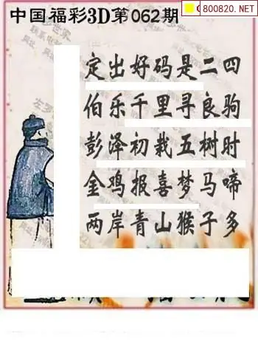 800820.NET
中国福彩3D第062期
定出好码是二四
伯乐千里寻良驹
彭泽初栽五树时
金鸡报喜梦马啼
两岸青山猴子多